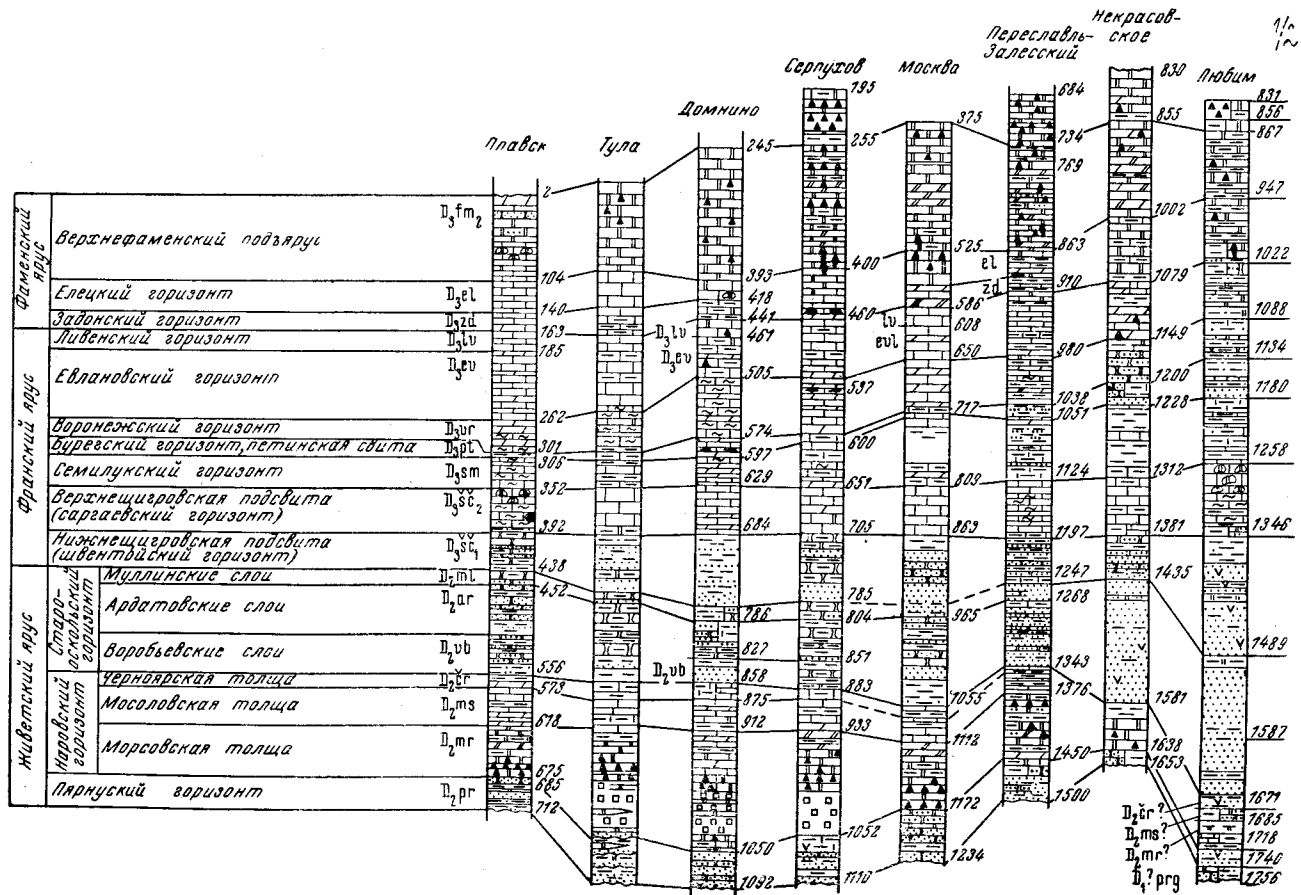 Плавск
Тула
Домнино
Серпухов
Москва
Переславль-
Залесский
Некрасов-
ское
Любим
Фаменский ярус
Верхнефаменский подъярус D₃fm₂
Елецкий горизонт D₃el
Задонский горизонт D₃zd
Франский ярус
Ливенский горизонт D₃lv
Евлановский горизонт D₃ev
Воронежский горизонт D₃vr
Бурегский горизонт, петинская свита D₃pt
Семилукский горизонт D₃sm
Верхнещигровская подсвита D₃šč₂
(саргаевский горизонт)
Нижнещигровская подсвита D₃šč₁
(швентойский горизонт)
Живетский ярус
Старо-
оскольский
горизонт
Муллинские слои D₂ml
Ардатовские слои D₂ar
Воробьевские слои D₂vb
Наровский
горизонт
Черноярская толща D₂čr
Мосоловская толща D₂ms
Морсовская толща D₂mr
Пярнуский горизонт D₂pr
2
104
140
163
185
262
301
306
352
392
438
452
556
573
618
675
685
712
D₃lv
D₃ev
245
393
418
441
461
505
574
597
629
684
786
827
858
875
912
1050
1092
D₂vb
195
255
400
460
537
600
651
705
785
804
851
883
933
1052
1110
375
525
el
zd
586
lv
608
evl
650
717
809
863
965
1055
1112
1172
1234
684
734
769
863
910
980
1038
1051
1124
1197
1247
1268
1343
1376
1450
1500
830
855
1002
1079
1149
1200
1228
1312
1381
1435
1581
1638
1653
831
856
867
947
1022
1088
1134
1180
1258
1346
1489
1587
1671
1685
1718
1740
1756
D₂čr?
D₂ms?
D₂mr?
D₁?prg